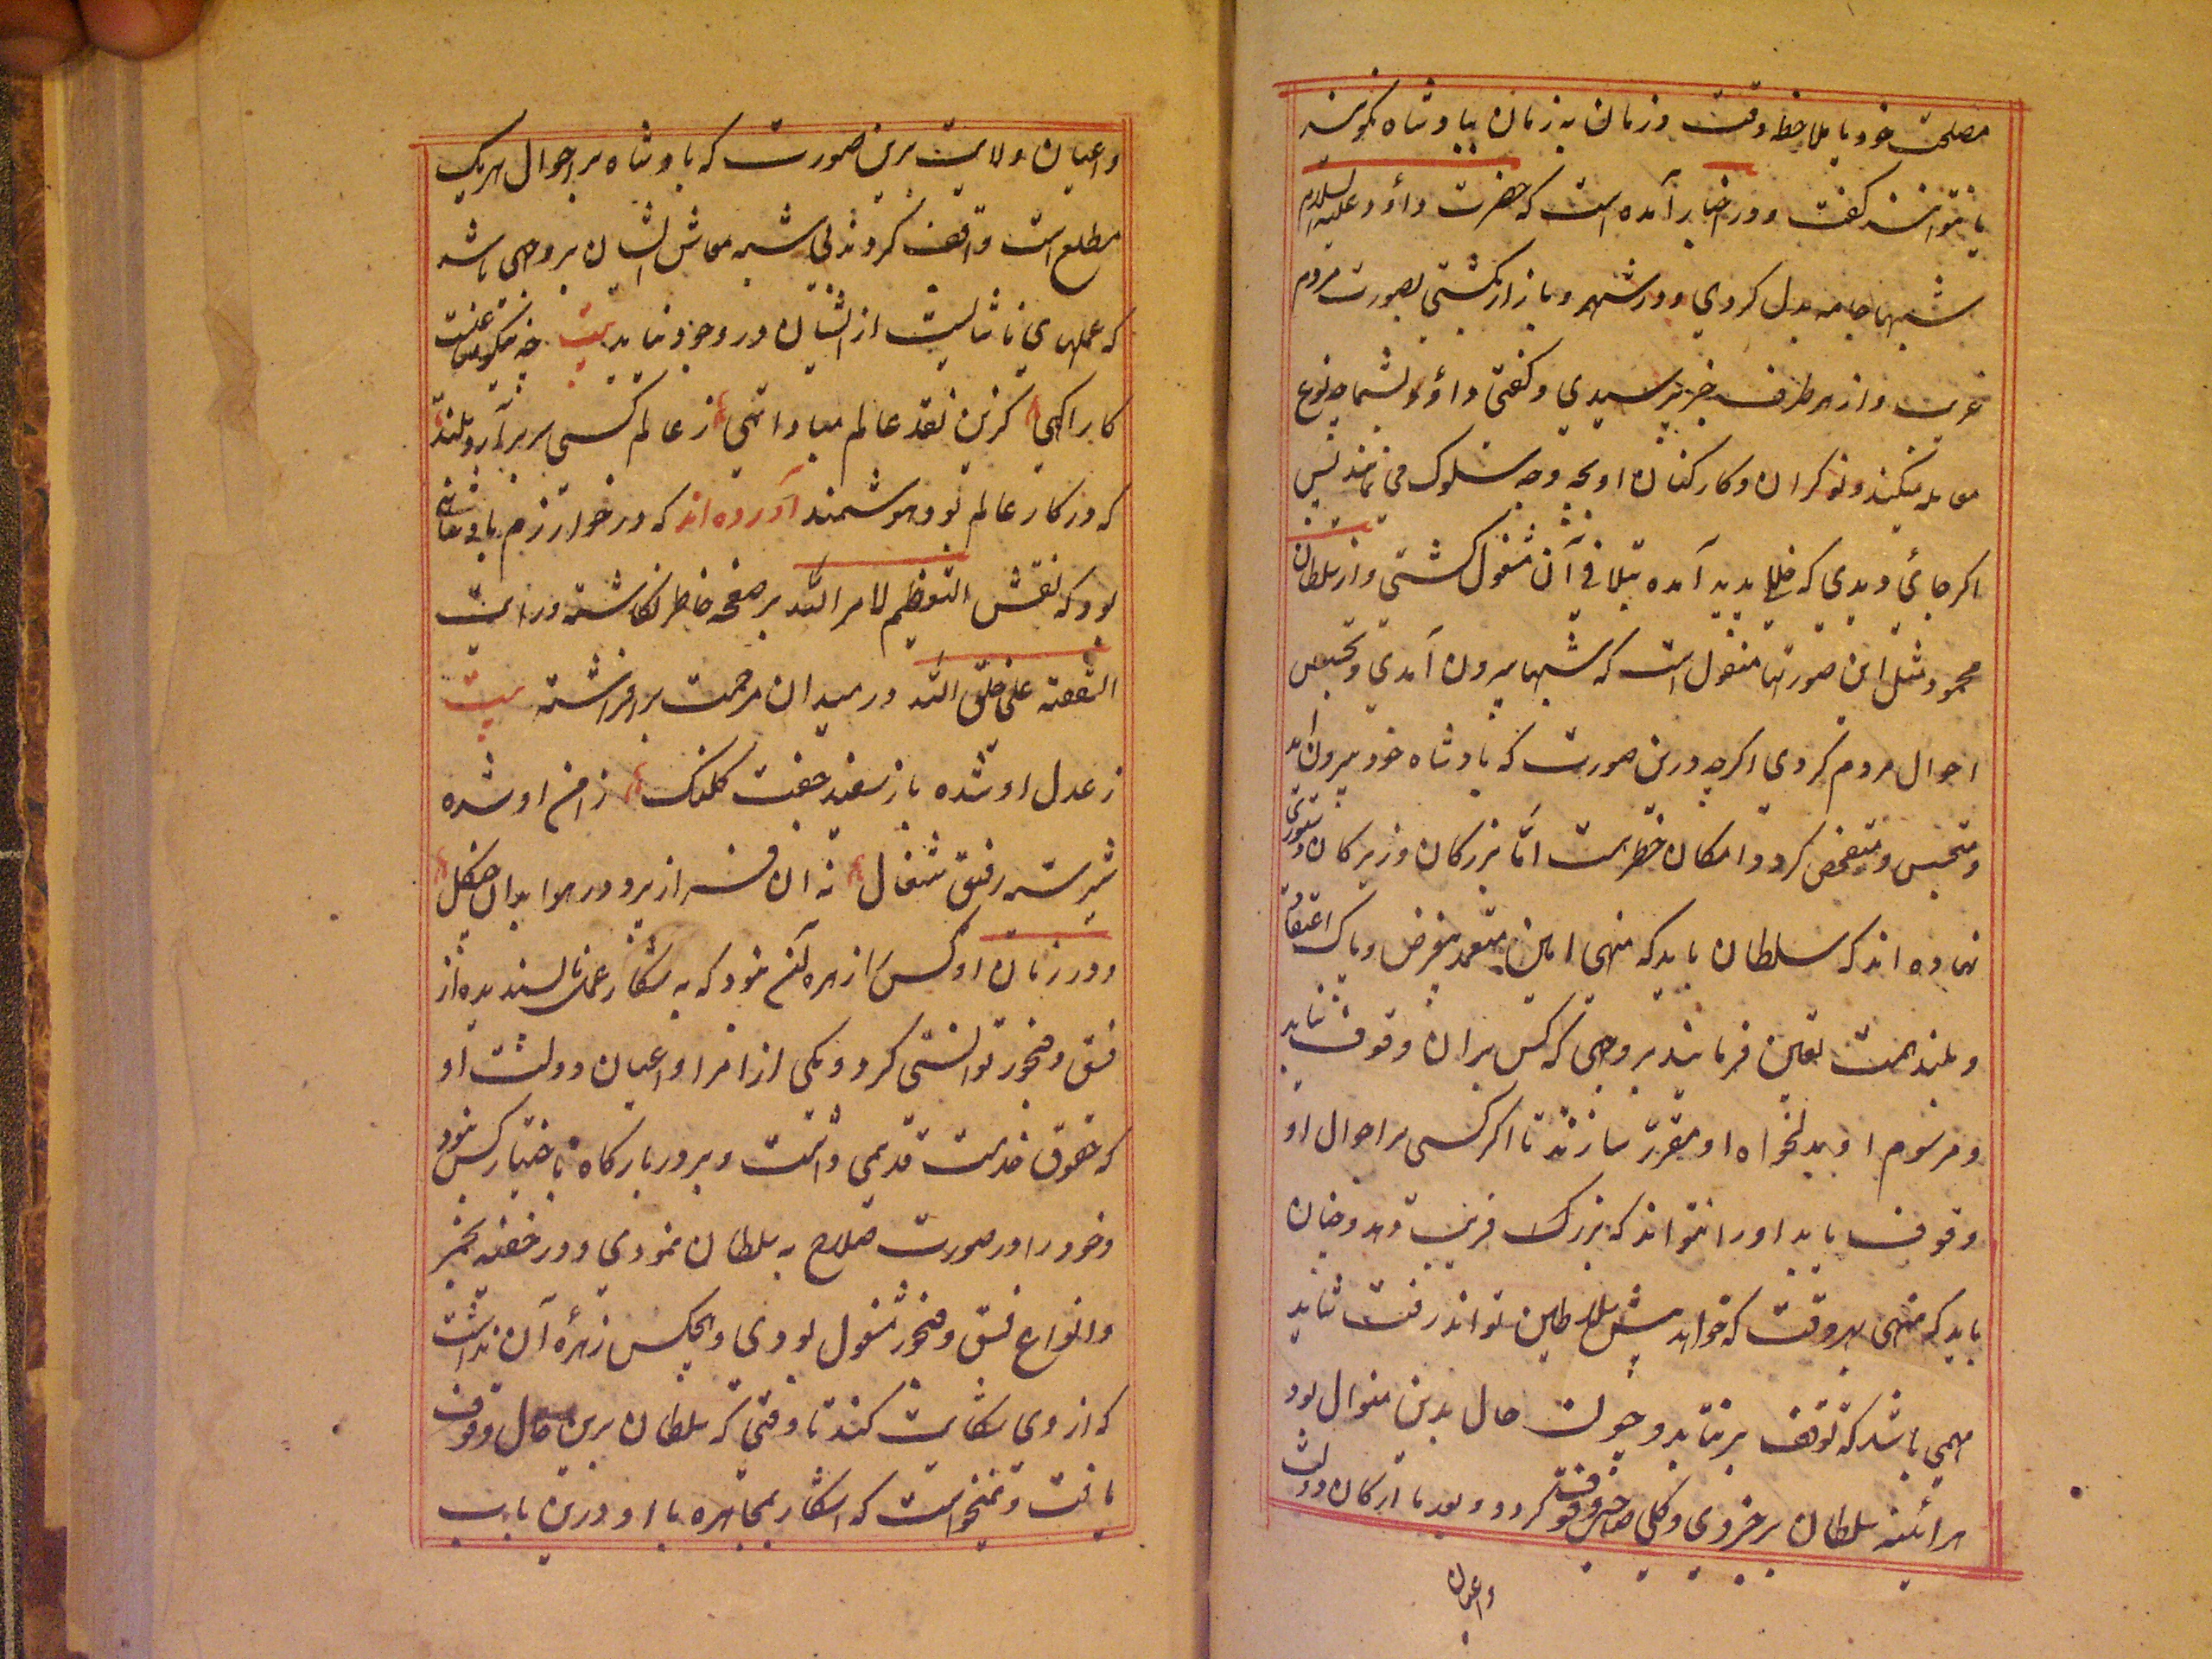 مصلحت خود یا ملاحظه وقت و زمان به زمان بپادشاه نگویند
یا نتوانند گفت و در اخبار آمده است که حضرت داؤد علیه السلام
شبها جامه بدل کردی و در شهر و بازار گشتی بصورت مردم
غریب و از هر طرف خبر پرسیدی و گفتی داؤد بشما چه نوع
معامله میکند و نوکران و کارکنان او بچه وجه سلوک می نمایند پس
اگر جائی دیدی که خللی پدید آمده بتلافی آن مشغول گشتی و از سلطان
محمود مثل این صورتها منقول است که شبها بیرون آمدی و تجسس
احوال مردم کردی اگرچه درین صورت که پادشاه خود بیرون آید
و متجسس و متفحص گردد امکان خطریست امّا بزرگان و زیرکان دستوری
نهاده اند که سلطان باید که منهی امین معتمد بیغرض و پاک اعتقاد
و بلند همت تعین فرمایند بروجهی که کس بران وقوف نیابد
و مرسوم او بدلخواه او مقرر سازند تا اگر کسی بر احوال او
وقوف یابد او را نتواند که بزرگ فریب دهد و چنان
باید که منهی بهر وقت که خواهد پیش سلاطین تواند رفت شاید
مهمی باشد که توقف برنتابد و چون حال بدین منوال بود
هر آئینه سلطان بر جزوی و کلی صاحب وقوف گردد و بعد با ارکان دولت
واعیان
و اعیان ولایت برین صورت که پادشاه بر احوال هر یک
مطلع است واقف گردند بی شبه معاش ایشان بروجهی باشد
که عملهای ناشایست از ایشان در وجود نیاید بیت چه نیکو متاعیست
کار آگهی کزین نقد عالم مبادا تهی ز عالم کسی سر برآرد بلند
که در کار عالم بود هوشمند آورده اند که در خوارزم پادشاهی
بود که نقش التعظیم لامر الله بر صفحه خاطر نگاشته و رایت
الشفقة علی خلق الله در میدان مرحمت برافراشته بیت
ز عدل او شده باز سفید جفت کلنگ ز امن او شده
شیر سیه رفیق شغال نه ان فراز برد در هوا بدان چنگل
و در زمان او کس را زهره آن نبود که به آشکار عمل ناپسندیده از
فسق و فجور توانستی کرد و یکی از امرا و اعیان دولت او
که حقوق خدمت قدیمی داشت و بر در بارگاه با اختیار کس نبود
و خود را در صورت صلاح به سلطان نمودی و در خفیه بخمر
و انواع فسق و فجور مشغول بودی و هیچکس زهرهٔ آن نداشت
که از وی شکایت کند تا وقتی که سلطان برین حال وقوف
یافت و نمیخواست که آشکار بمجاهره با او درین باب